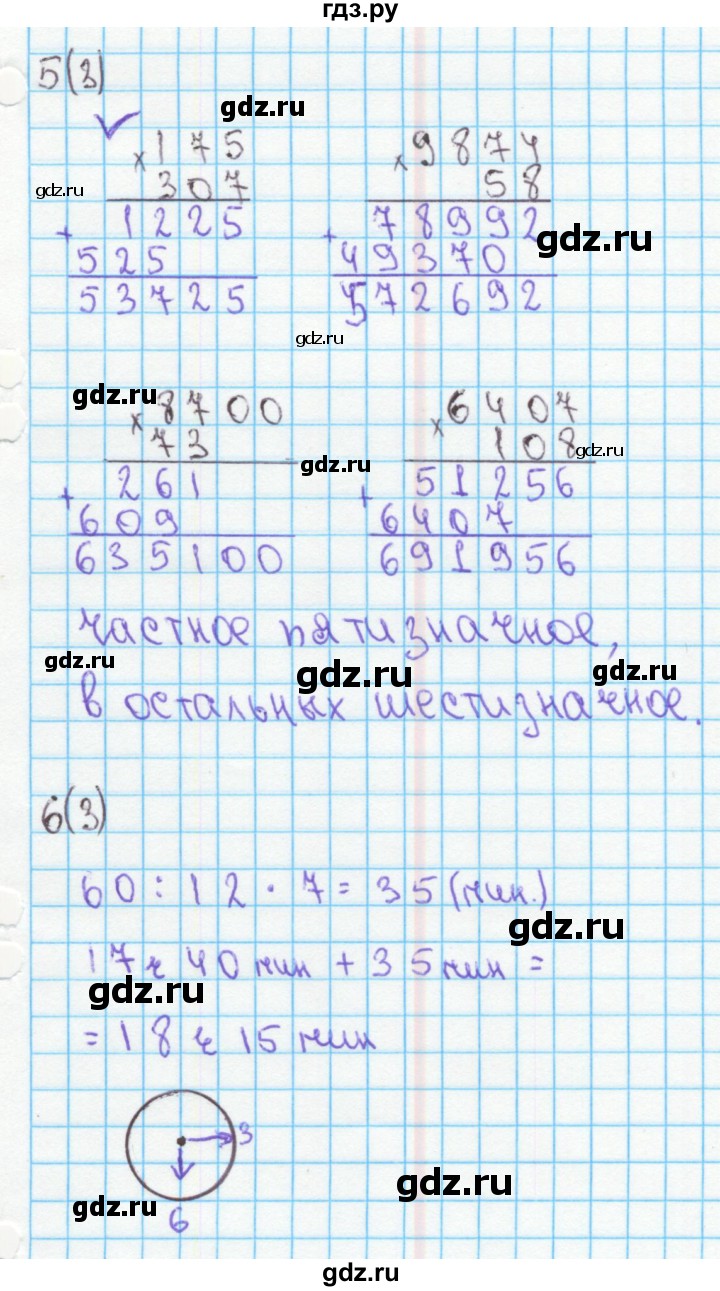 гдз.ру
5(3)
gdz.ru
× 175
307
gdz.ru
+ 1225
525
53725
× 9874
58
+ 78992
gdz.ru
49370
572692
gdz.ru
gdz.ru
× 8700
73
gdz.ru
+ 261
609
635100
× 6407
108
gdz.ru
+ 51256
6407
691956
частное пятизначное,
gdz.ru
gdz.ru
gdz.ru
в остальных шестизначное.
6(3)
60 : 12 · 7 = 35 (мин.)
gdz.ru
17 ч 40 мин + 35 мин =
gdz.ru
= 18 ч 15 мин
3
6
gdz.ru
gdz.ru
gdz.ru